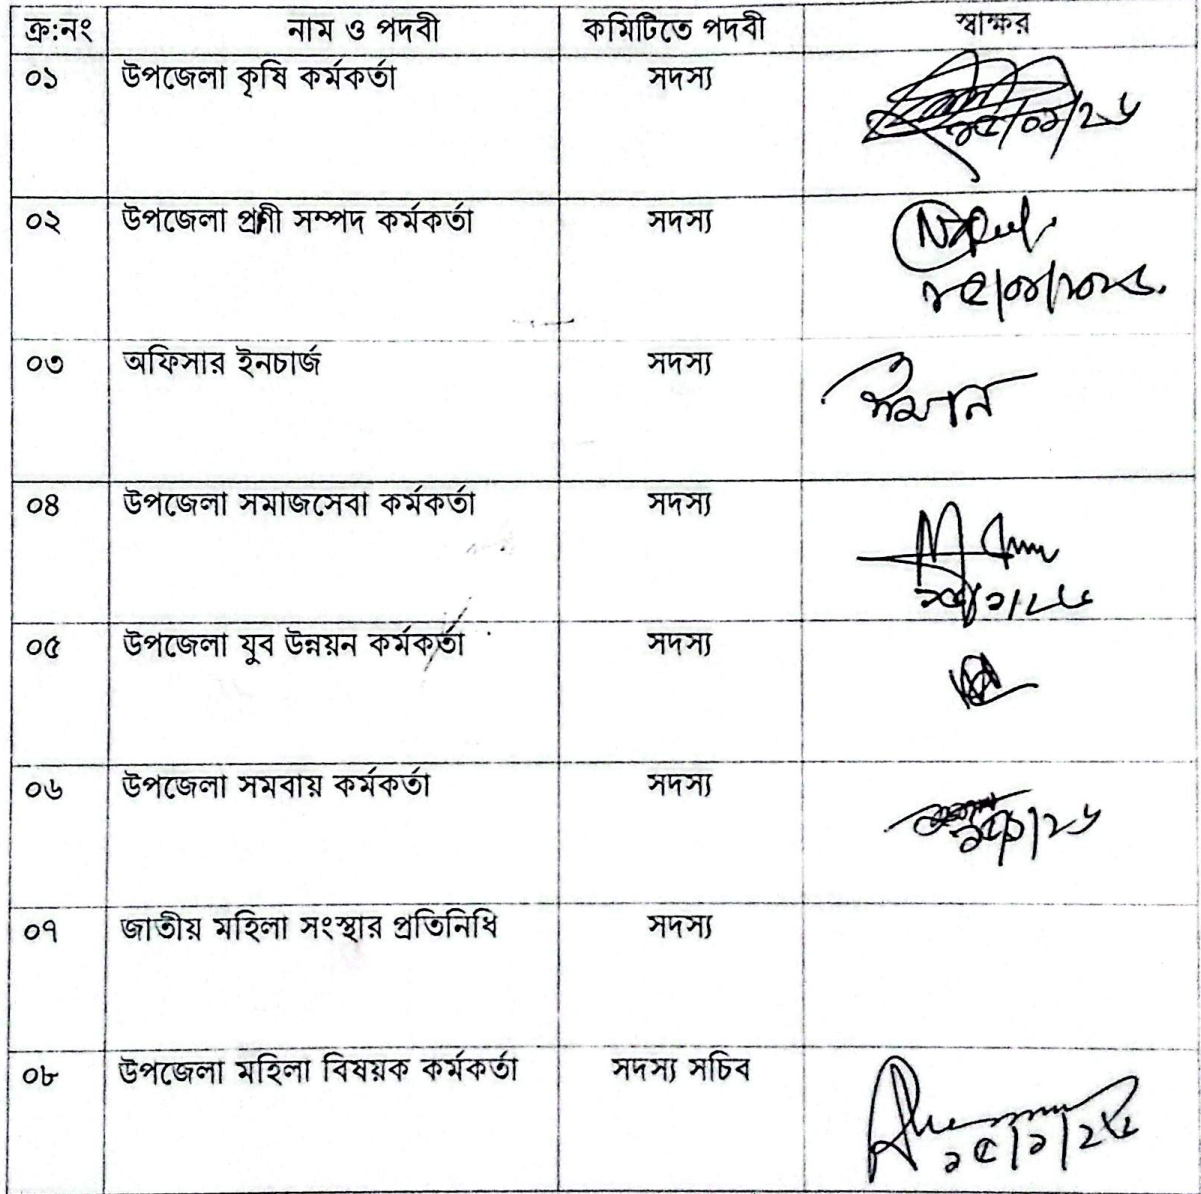 ক্র:নং নাম ও পদবী কমিটিতে পদবী স্বাক্ষর
০১ উপজেলা কৃষি কর্মকর্তা সদস্য
১৫/০১/২৬
০২ উপজেলা প্রণী সম্পদ কর্মকর্তা সদস্য
১৫/০১/২০২৬.
০৩ অফিসার ইনচার্জ সদস্য
০৪ উপজেলা সমাজসেবা কর্মকর্তা সদস্য
০৫ উপজেলা যুব উন্নয়ন কর্মকর্তা সদস্য
০৬ উপজেলা সমবায় কর্মকর্তা সদস্য
০৭ জাতীয় মহিলা সংস্থার প্রতিনিধি সদস্য
০৮ উপজেলা মহিলা বিষয়ক কর্মকর্তা সদস্য সচিব
১৫/১/২৬